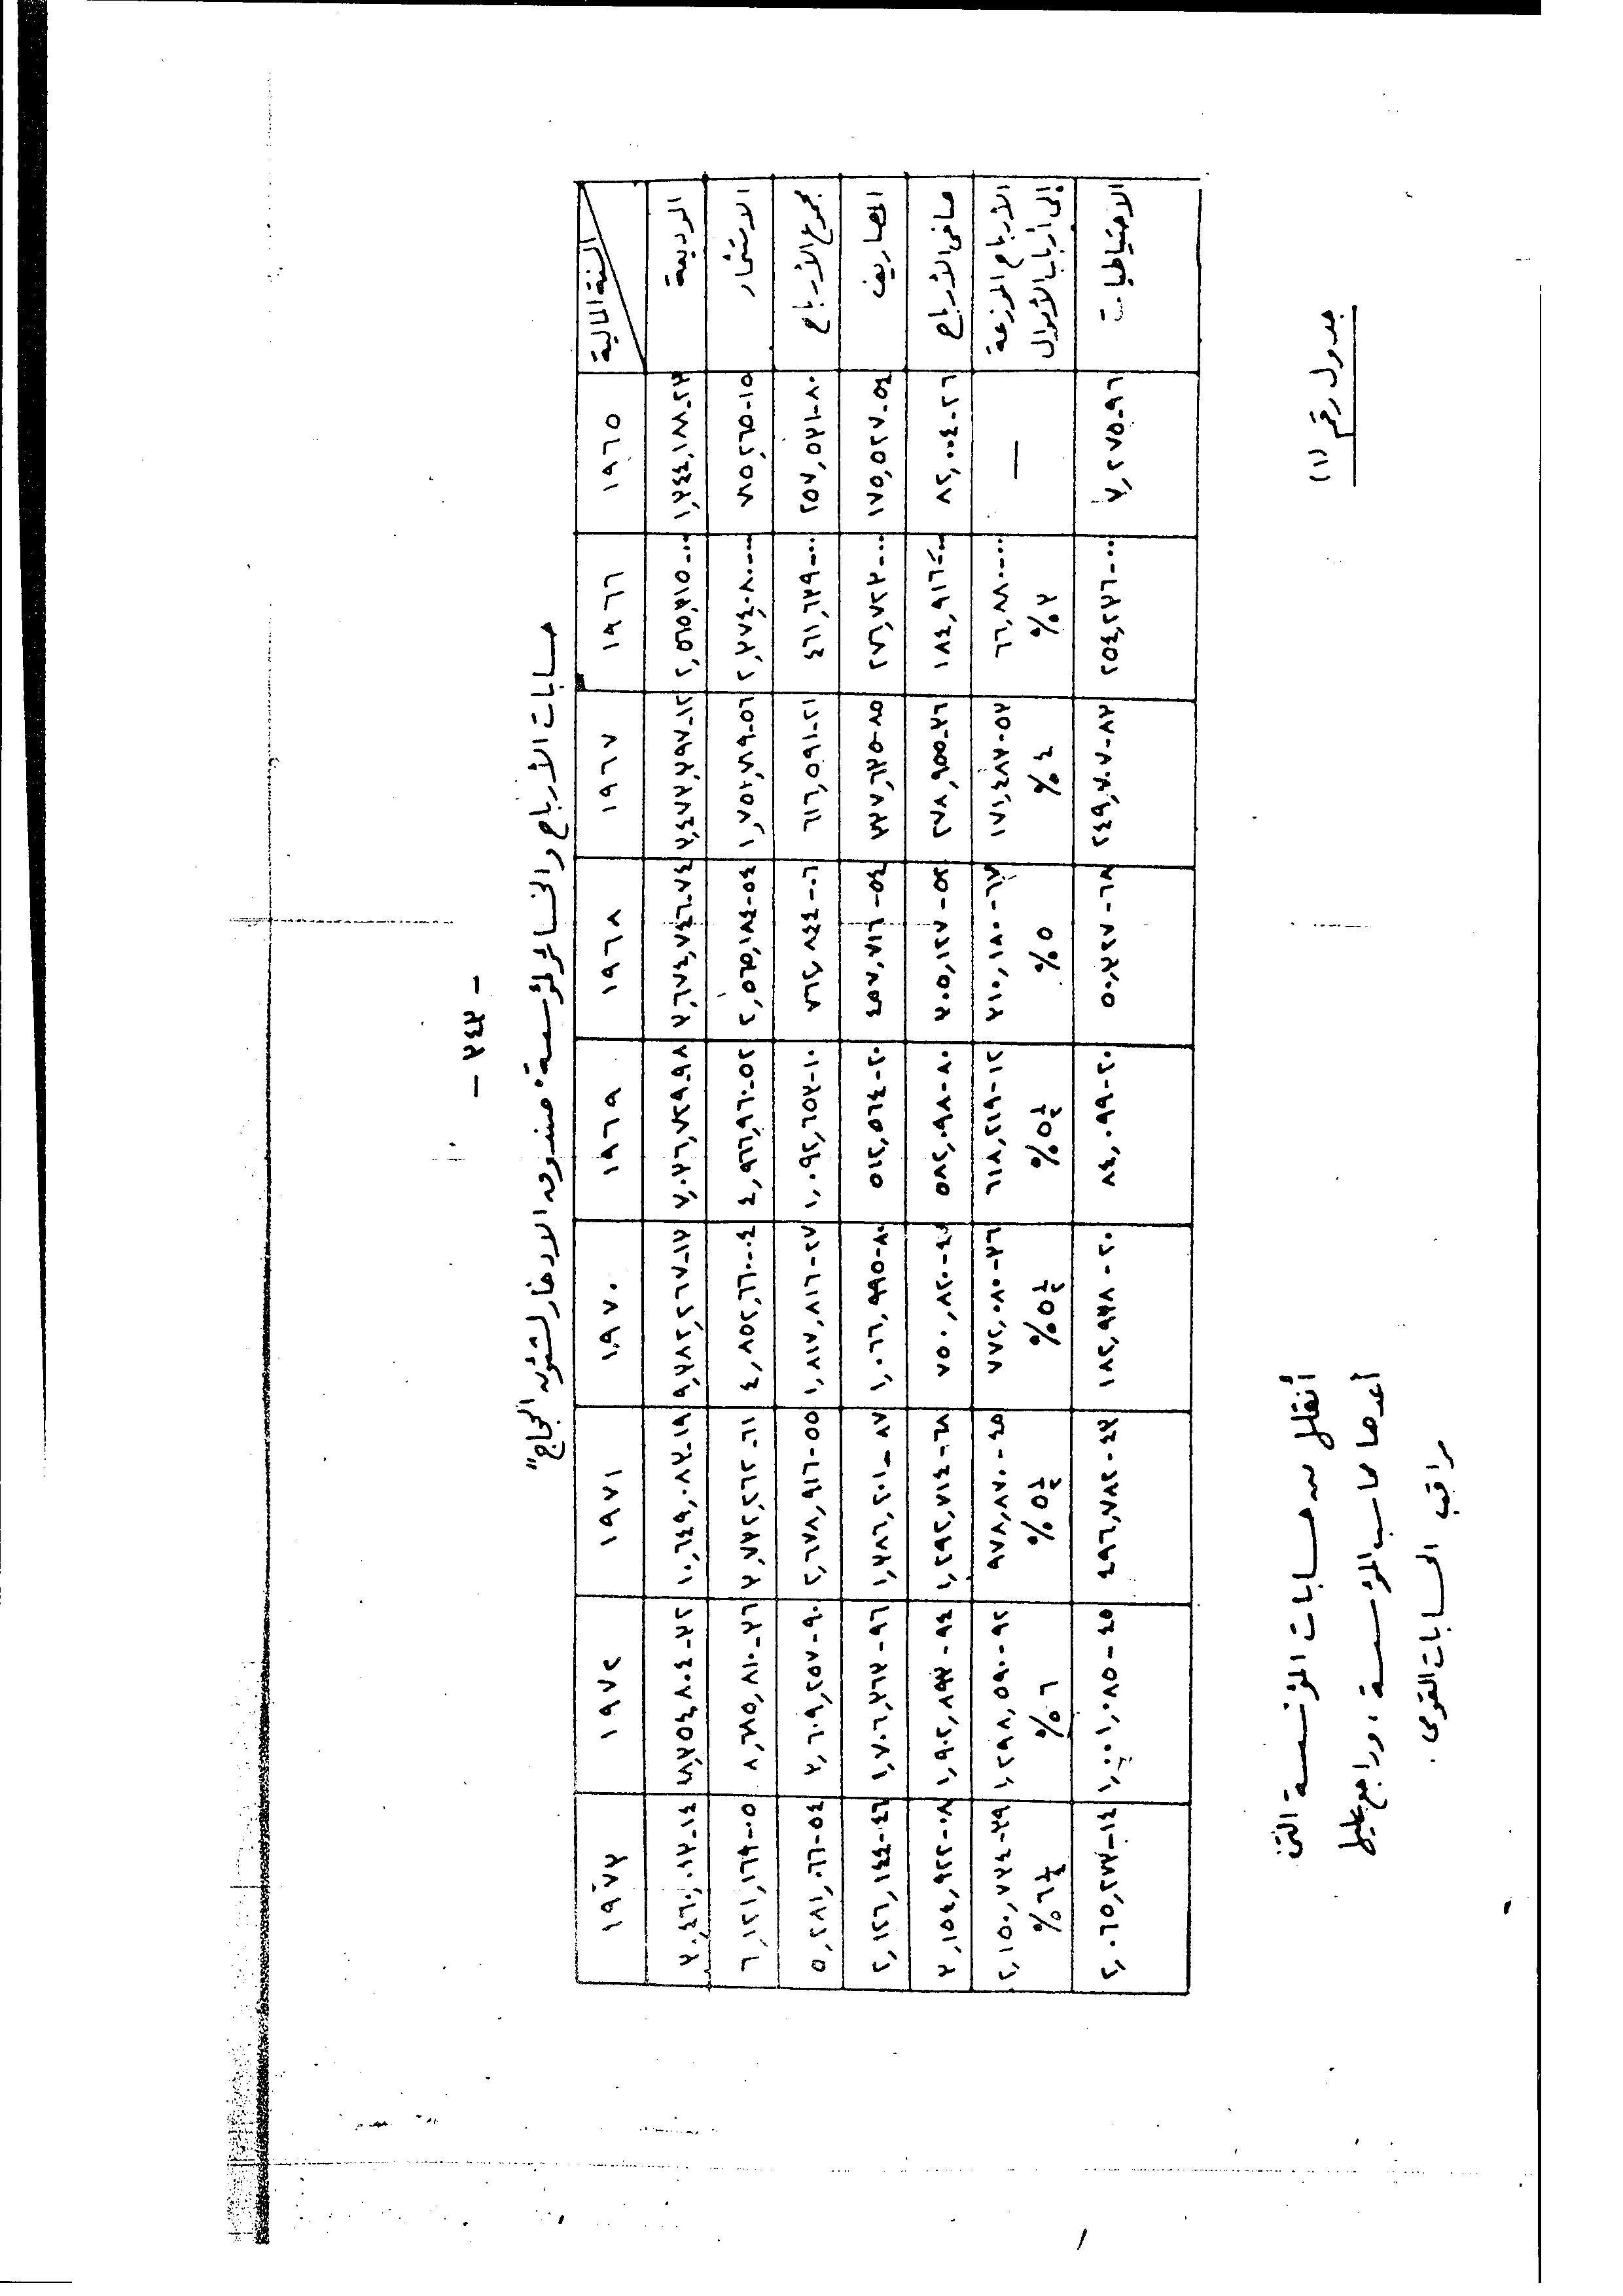 - ٣٤٣ -
حسابات الأرباح والخسائر لمؤسسة "صندوق الادخار لشئون الحجاج"
السنة المالية ١٩٦٥ ١٩٦٦ ١٩٦٧ ١٩٦٨ ١٩٦٩ ١٩٧٠ ١٩٧١ ١٩٧٢ ١٩٧٣
الوديعة ١,٣٤٤,١٨٨-٢٣ ٢,٥٦٥,٣١٥-٠٠ ٣,٤٧٣,٣٩٧-١٢ ٣,٦٧٤,٧٤٦-٧٤ ٧,٠٣٦,٧٢٩-٩٨ ٩,٣٨٢,٢٦٧-١٣ ١٠,٦٤٩,٠٨٣-١٩ ٣٠,٤٦٠,٠١٣-١٤
الاستثمار ٧٨٥,٢٦٥-١٥ ٢,٣٧٤,٠٨٠-٠٠ ١,٧٥٢,٧١٩-٥٦ ٢,٥٦٥,١٨٤-٥٤ ٤,٩٦٦,٩٦٠-٥٢ ٤,٨٥٢,٦٦٠-٠٤ ٣,٧٣٢,٢٦٢-٦١ ٨,٦٧٥,٨١٠-٢٦ ٦,١٢١,١٦٩-٠٥
مجموع الأرباح ٢٥٧,٥٣١-٨٠ ٤٦١,٦٣٩-٠٠ ٦١٦,٥٩١-٢١ ٧٦٢,٨٤٤-٠٦ ١,٠٩٢,٦٥٣-١٠ ١,٨١٧,٨١٦-٢٧ ٢,٦٧٨,٩١٦-٥٥ ٣,٦٠٩,٢٥٧-٩٠ ٥,٢٨١,٠٦٦-٥٤
المصاريف ١٧٥,٥٢٧-٥٤ ٢٧٦,٧٢٣-٠٠ ٣٣٧,٦٣٥-٨٥ ٤٥٧,٧١٦-٥٤ ٥١٢,٥٦٤-٢٠ ١,٠٦٦,٩٩٥-٨٠ ١,٣٨٦,٢٠١-٨٧ ١,٧٠٦,٣٦٣-٩٦ ٢,١٢٦,١٤٤-٤٦
صافى الأرباح ٨٢,٠٠٤-٢٦ ١٨٤,٩١٦-٠٠ ٢٧٨,٩٥٥-٣٦ ٣٠٥,١٢٧-٥٢ ٥٨٢,٠٩٨-٨٠ ٧٥٠,٨٢٠-٤٧ ١,٢٩٢,٧١٤-٦٨ ١,٩٠٢,٨٩٣-٩٤ ٣,١٥٤,٩٢٢-٠٨
الأرباح الموزعة — ٦٦,٨٨٠-٠٠ ١٧١,٤٨٣-٥٣ ٢١٠,١٨٠-٦٣ ٦١٨,٢١٩-١٢ ٧٧٢,٠٨٠-٣٦ ٩٧٨,٨٧٠-٤٥ ١,٢٩٨,٥٩٠-٩٢ ٢,١٥٠,٧٣٤-٣٩
إلى أرباب الأموال ٣٪ ٤٪ ٥٪ ٥½٪ ٥½٪ ٥½٪ ٦٪ ٦½٪
الاحتياطيات ٧,٢٧٥-٩٦ ٢٥٤,٢٣٦-٠٠ ٢٤٩,٧٠٧-٨٣ ٥٠,٣٢٧-٦٨ ٨٤,٠٩٩-٢٠ ١٨٢,٩٣٨-٢٠ ٤٩٦,٧٨٢-٤٣ ١,٠٠١,٠٨٥-٤٥ ٢,٠٦٥,٢٣٣-١٤
جدول رقم (١)
أنقل من حسابات المؤسسة التى
أعدها محاسب المؤسسة، وراجع عليها
مراقب الحسابات القومى.